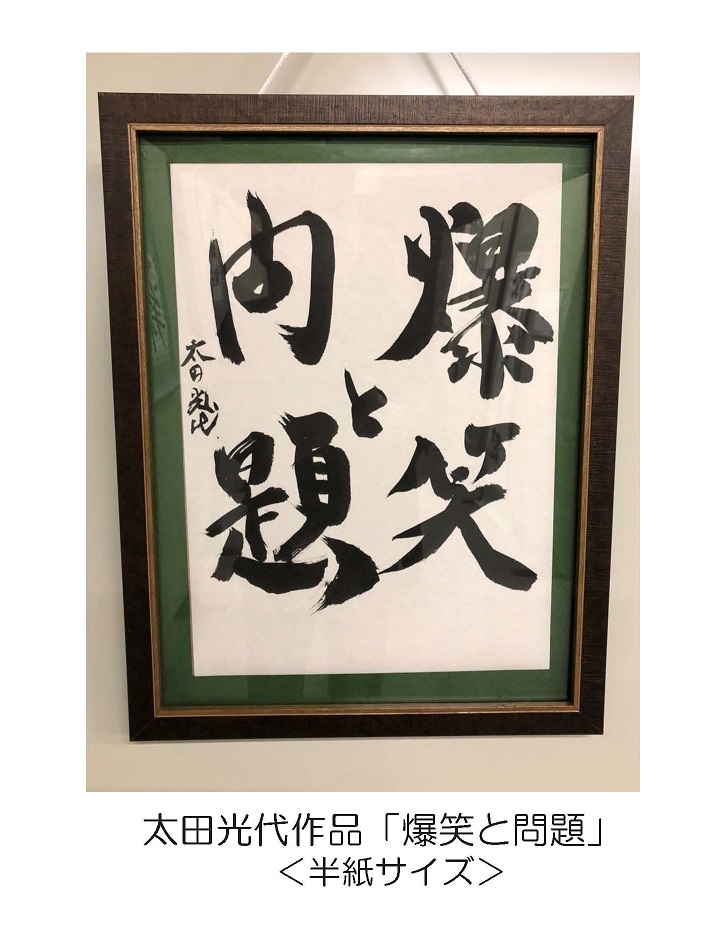 爆笑
と
問題
太田光代
太田光代作品「爆笑と問題」
＜半紙サイズ＞